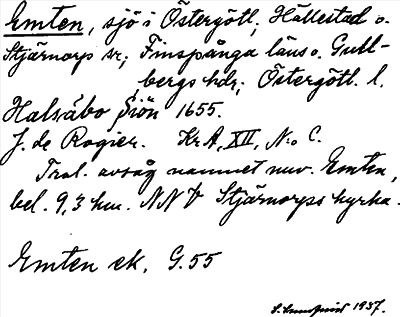 Emten, sjö i Östergötl., Hällestad o.
Stjärnorp sr; Finspånga läns o. Gull-
bergs hdr; Östergötl. l.
Halsåbo Siön 1655.
J. de Rogier. KrA, XII, N:o C.
Trol. avsåg namnet nuv. Emten,
bel. 9,3 km. NNV Stjärnorps kyrka.
Emten ek. G. 55
S. Lundqvist 1937.